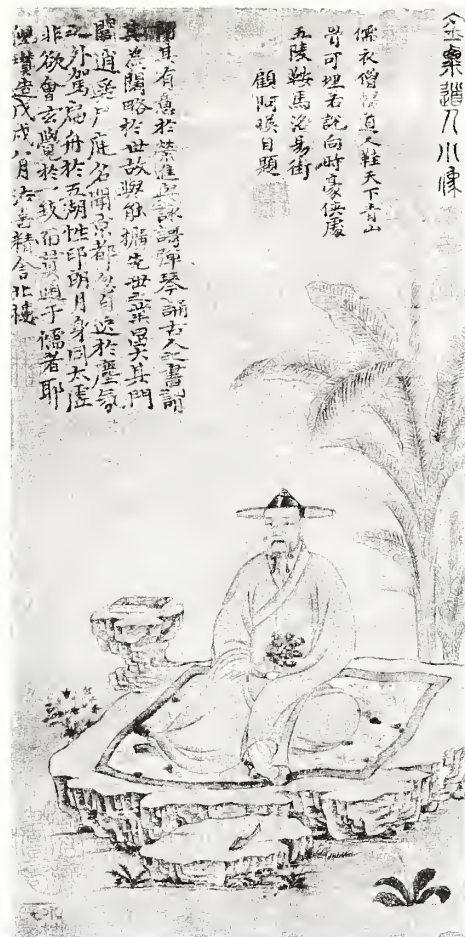 金粟道人小像
儒衣僧帽道人鞋天下青山
骨可埋若說向時豪俠處
五陵鞍馬洛昜街
顧阿瑛自題
謂其有意於榮進與詠謌彈琴誦古人之書謂
其無闊略於世故與能擴先世之業其門
閭逍遙戶庭名聞京都忽自逸於塵氛
之外駕扁舟於五湖性印朗月身同太虛
非欲會玄覺於一致而貫通于儒者耶
倪瓚書戊戌八月精舍北樓